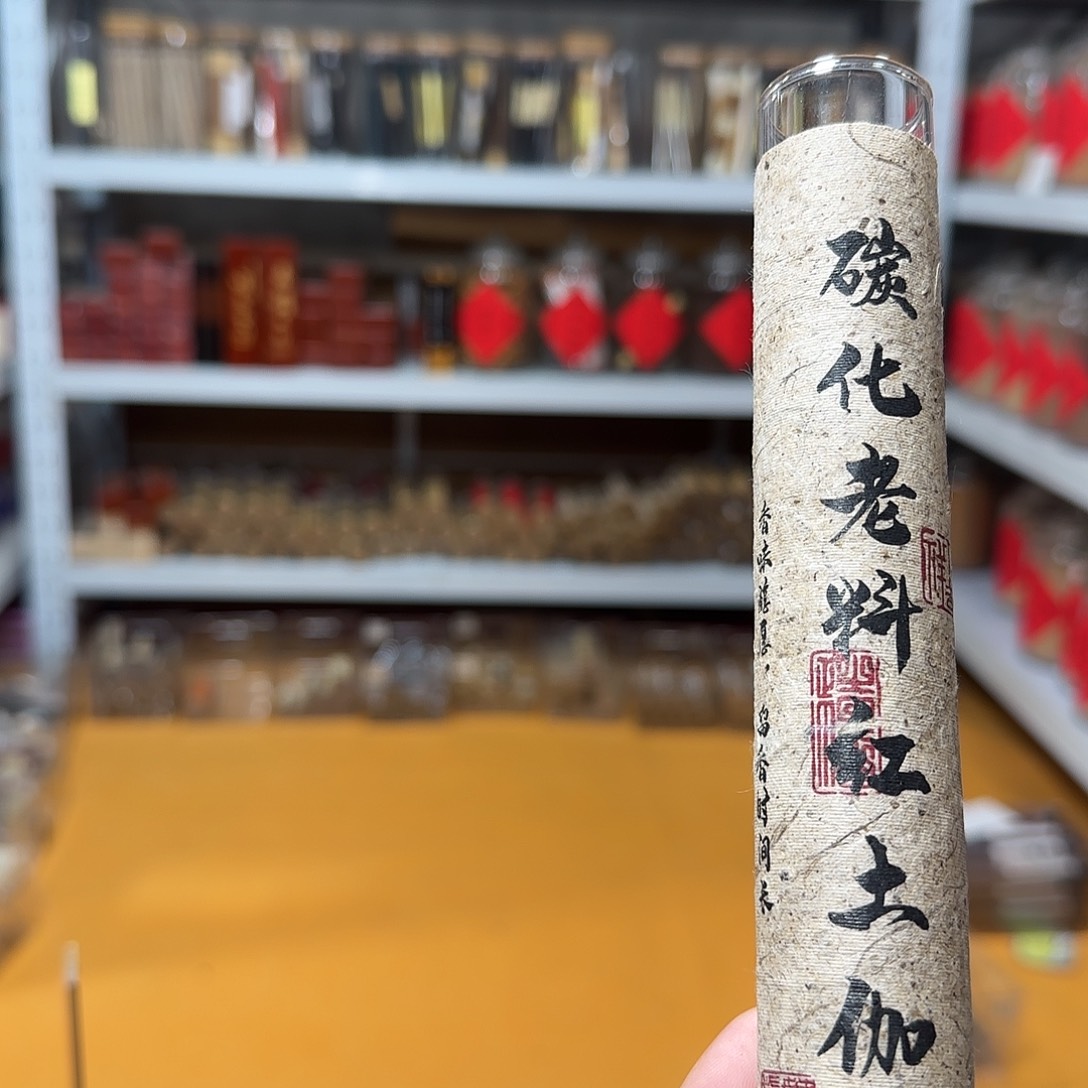 碳化老料红土伽
香味蕴息,留香时间长